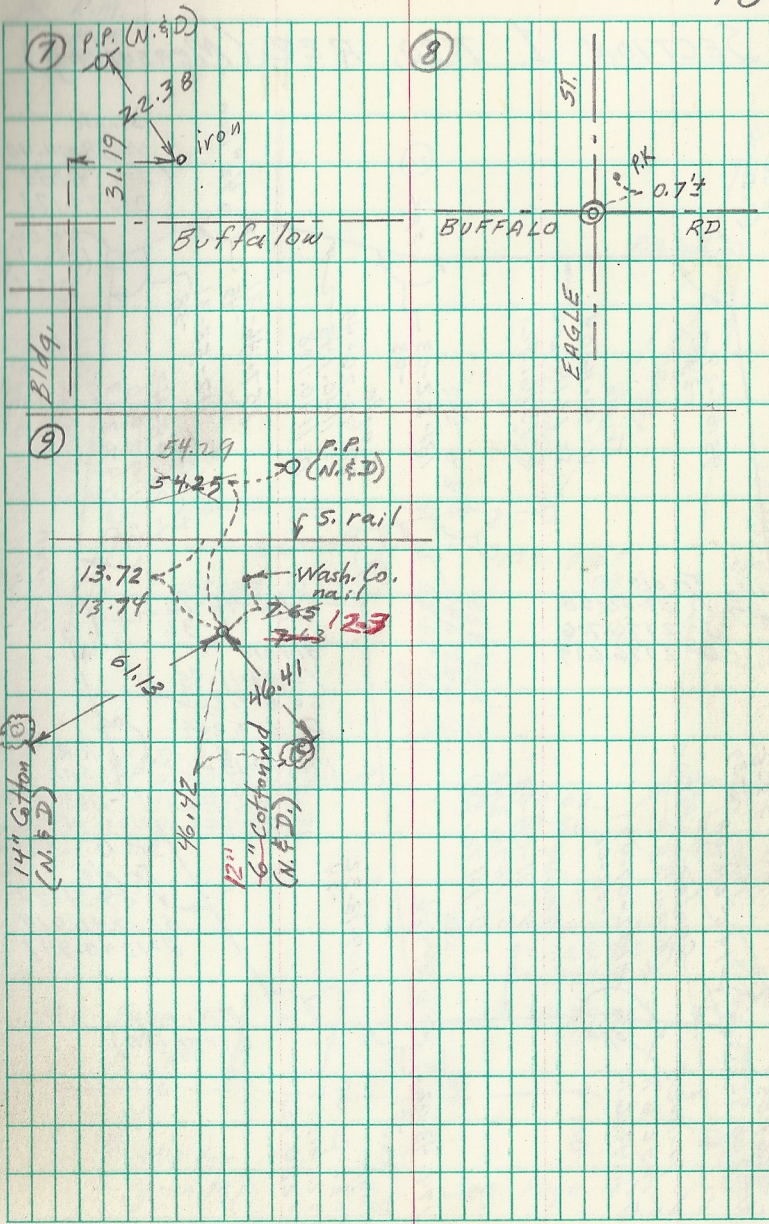 7
P.P. (N.&D)
22.38
iron
31.19
Buffalow
Bldg.
8
ST.
P.K
0.7'±
BUFFALO RD
EAGLE
9
54.29
54.25
P.P.
(N.&D)
S. rail
13.72
13.74
Wash. Co.
nail
7.65
7.63
12-3
61.13
46.41
14" Cotton
(N.&D)
46.42
12"
6" Cottonwd
(N.&D.)